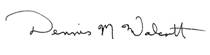 Dennis M Walcott